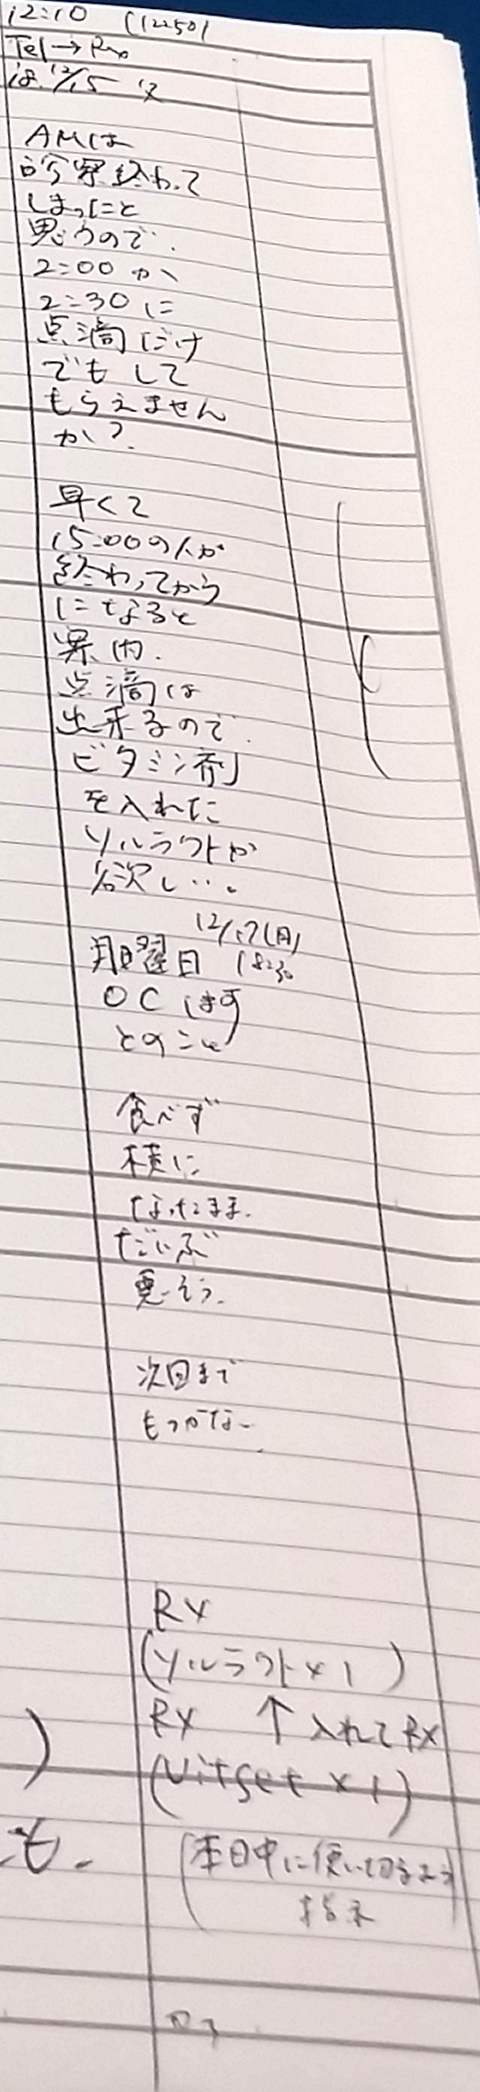 12:10 (12250)
Tel →
18.12/15
AMは
診察終わって
しまったと
思うので.
2:00か
2:30に
点滴だけ
でもして
もらえません
か?
早くて
15:00の人が
終わってから
になると
案内.
点滴は
出来るので
ビタミン剤
を入れた
ソルラクトが
欲しい。
12/17(月)
月曜日 18:30
OCします
とのこと
食べず
横に
なったまま.
だいぶ
悪そう.
次回まで
もつかな
RX
(ソルラクト×1)
RX ↑入れてRX
(Vitget×1)
(本日中に使い切るよう
指示
も.